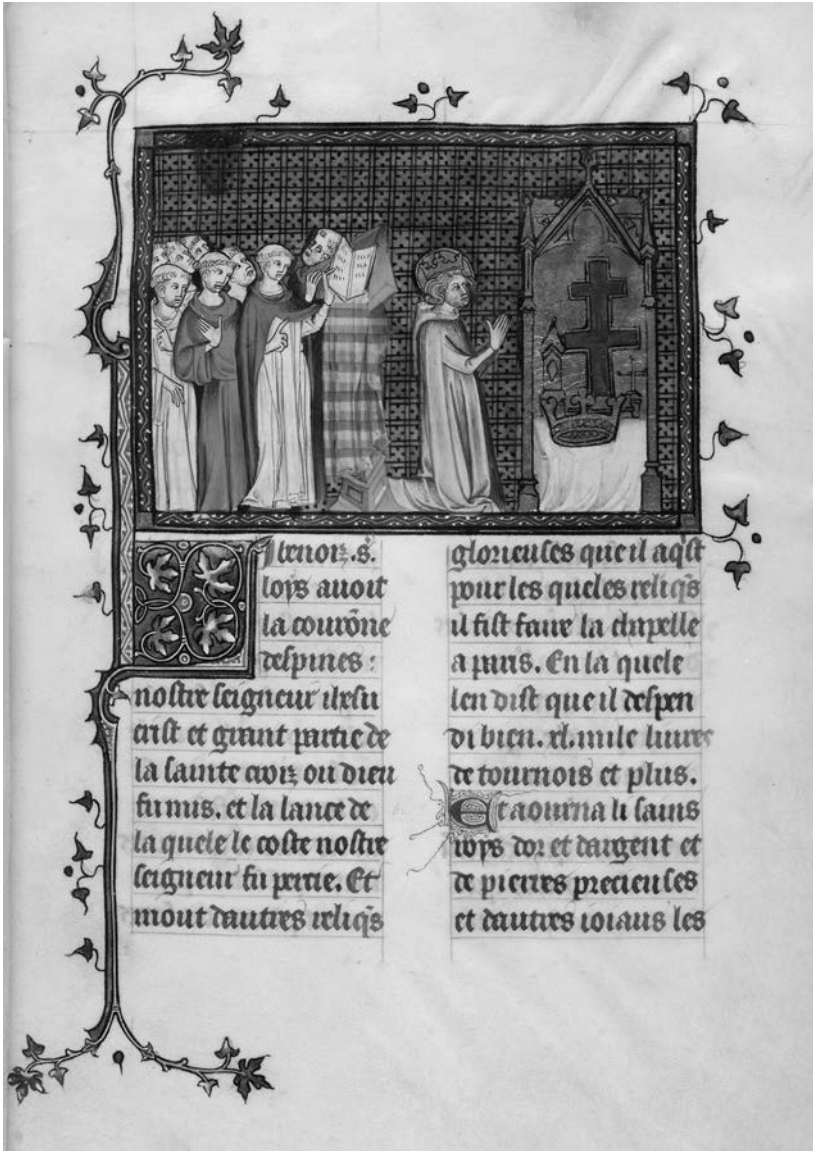 Li benoiz .s.
loys auoit
la courōne
despines :
nostre seigneur ihesu
crist et grant partie de
la sainte croiz ou dieu
fu mis. et la lance de
la quele le coste nostre
seigneur fu percie. Et
mout dautres reliq̄s
glorieuses que il aq̄st
pour les queles reliq̄s
il fist faire la chapelle
a paris. En la quele
len dist que il despen
di bien .xl. mile liures
de tournois et plus.
Et aourna li sains
roys dor et dargent et
de pierres precieuses
et dautres ioiaus les